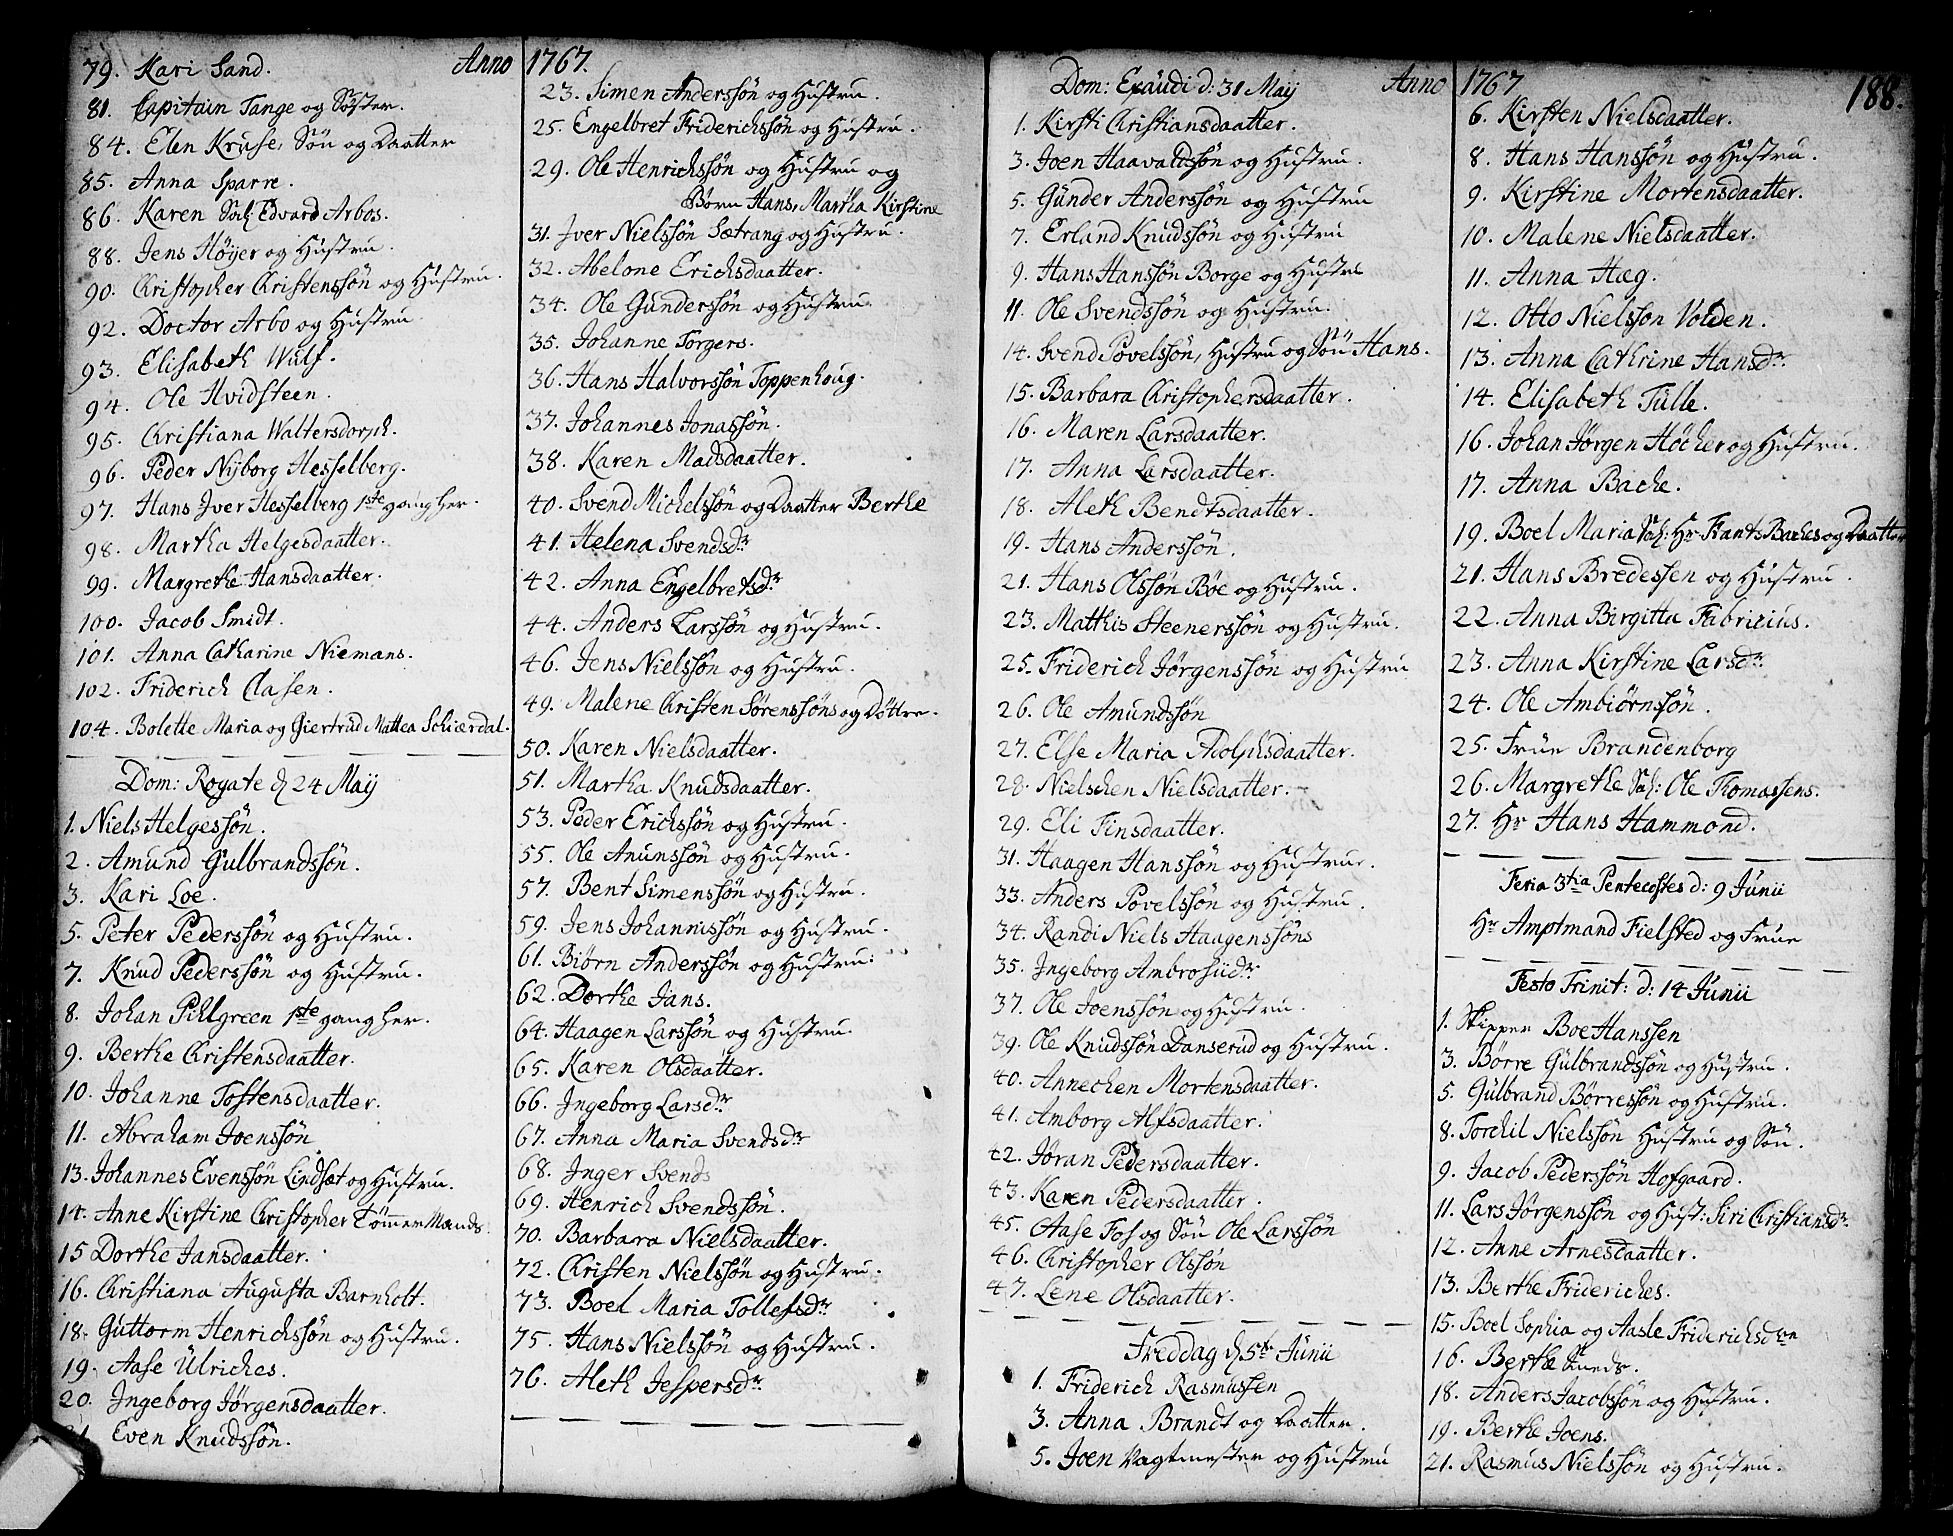 79. Kari Sand. Anno
81. Capitain Tange og Søster.
84. Elen Kruse, Søn og Daatter
85. Anna Sparre.
86. Karen Sal: Edvard Arbos.
88. Jens Høyer og Hustru.
90. Christopher Christenssøn og Hustru.
92. Doctor Arbo og Hustru.
93. Elisabeth Wulf.
94. Ole Hvidsteen.
95. Christiana Waltersdorph.
96. Peder Nyborg Hesselberg.
97. Hans Jver Hesselberg 1ste gang her.
98. Martha Helgesdaatter.
99. Margrethe Hansdaatter.
100. Jacob Smidt.
101. Anna Catharine Niemans.
102. Friderich Clasen.
104. Bolette Maria og Giertrud Mattea Schiærdal.
Dom: Rogate d. 24 Maij
1. Niels Helgessøn.
2. Amund Gulbrandssøn.
3. Kari Loe.
5. Peter Pederssøn og Hustru.
7. Knud Pederssøn og Hustru.
8. Johan Pihlgreen 1ste gang her.
9. Berthe Christensdaatter.
10. Johanne Tostensdaatter.
11. Abraham Joenssøn
13. Johannes Evenssøn Lindsæt og Hustru.
14. Anne Kirstine Christopher Tømmermands.
15 Dorthe Jansdaatter.
16. Christiana Augusta Barnholt.
18. Guttorm Henrichssøn og Hustru.
19. Aase Ulriches.
20. Ingeborg Jørgensdaatter.
21. Even Knudssøn.
1767.
23. Simen Anderssøn og Hustru.
25. Engelbret Friderichssøn og Hustru.
29. Ole Henrichssøn og Hustru og
Børn Hans, Martha Kirstine
31. Jver Nielssøn Sætrang og Hustru.
32. Abelone Erichsdaatter.
34. Ole Gunderssøn og Hustru.
35. Johanne Torgers.
36. Hans Halvorssøn Toppenhoug.
37. Johannes Jonassøn.
38. Karen Madsdaatter.
40. Svend Michelssøn og Daatter Berthe
41. Helena Svendsdr
42. Anna Engelbretsdr
44. Anders Larssøn og Hustru.
46. Jens Nielssøn og Hustru.
49. Malene Christen Sørenssøns og Døttre.
50. Karen Nielsdaatter.
51. Martha Knudsdaatter.
53. Peder Erichssøn og Hustru.
55. Ole Anunssøn og Hustru.
57. Bent Simenssøn og Hustru.
59. Jens Johannissøn og Hustru.
61. Biørn Anderssøn og Hustru.
62. Dorthe Jans.
64. Haagen Larssøn og Hustru.
65. Karen Olsdaatter.
66. Ingeborg Larsdr
67. Anna Maria Svendsdr
68. Inger Svends
69. Henrich Svendssøn.
70. Barbara Nielsdaatter.
72. Christen Nielssøn og Hustru.
73. Boel Maria Tollefsdr
75. Hans Nielssøn og Hustru.
76. Aleth Jespersdr
Dom: Exaudi d: 31 Maij Anno
1. Kirsti Christiansdaatter.
3. Joen Haavaldssøn og Hustru.
5. Gunder Anderssøn og Hustru
7. Erland Knudssøn og Hustru
9. Hans Hanssøn Borge og Hustru
11. Ole Svendssøn og Hustru.
14. Svend Povelssøn, Hustru og Søn Hans.
15. Barbara Christophersdaatter.
16. Maren Larsdaatter.
17. Anna Larsdaatter.
18. Aleth Bendtsdaatter.
19. Hans Anderssøn.
21. Hans Olssøn Bøe og Hustru.
23. Matthis Steenerssøn og Hustru.
25. Friderich Jørgenssøn og Hustru
26. Ole Amundssøn
27. Else Maria Adolphsdaatter.
28. Nielschen Nielsdaatter.
29. Eli Finsdaatter.
31. Haagen Hanssøn og Hustrue.
33. Anders Povelssøn og Hustru.
34. Randi Niels Haagenssøns
35. Ingeborg Ambrosiidr
37. Ole Joenssøn og Hustru.
39. Ole Knudssøn Danserud og Hustru.
40. Annechen Mortensdaatter.
41. Amborg Alfsdaatter.
42. Jøran Pedersdaatter.
43. Karen Pedersdaatter.
45. Aase Fos og Søn Ole Larssøn
46. Christopher Olssøn
47. Lene Olsdaatter.
Freddag d. 5te Junii
1. Friderich Rasmussen
3. Anna Brandt og Daatter.
5. Joen Vagtmester og Hustru
1767
188.
6. Kirsten Nielsdaatter.
8. Hans Hanssøn og Hustru.
9. Kirstine Mortensdaatter.
10. Malene Nielsdaatter.
11. Anna Hæg.
12. Otto Nielsson Volden.
13. Anna Cathrine Hansdr.
14. Elisabeth Tulle.
16. Johan Jørgen Høcher og Hustru.
17. Anna Bache.
19. Boel Maria Sal: Hr Frants Baches og Daatter
21. Hans Bredessen og Hustru.
22. Anna Birgitta Fabricius.
23. Anna Kirstine Larsdr
24. Ole Ambiørnssøn.
25. Frue Brandenborg
26. Margrethe Sal: Ole Thomassens.
27. Hr Hans Hammond.
Feria 3tia Pentecostes d: 9 Junii
Hr Amptmand Fielsted og Frue
Festo Trinit: d: 14 Junii
1. Skipper Boe Hanssen
3. Børre Gulbrandssøn og Hustru.
5. Gulbrand Børressøn og Hustru.
8. Torchil Nielssøn Hustru og Søn.
9. Jacob Pederssøn Hofgaard.
11. Lars Jørgenssøn og Hust: Siri Christiansdr
12. Anne Arnesdaatter.
13. Berthe Friderichs.
15. Boel Sophia og Aasle Friderichsdtre
16. Berthe
18. Anders Jacobssøn og Hustru.
19. Berthe Joens.
21. Rasmus Nielssøn og Hustru.